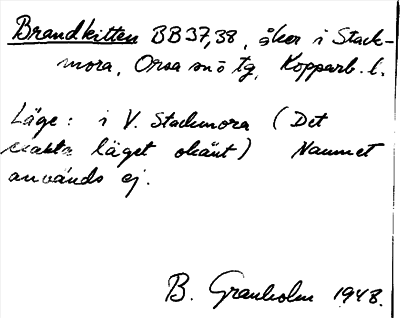 Brandkitten BB37,38, åker i Stack-
mora, Orsa snö tg, Kopparb. l.
Läge: i V. Stackmora (Det
exakta läget okänt) Namnet
används ej.
B. Granholm 1948.